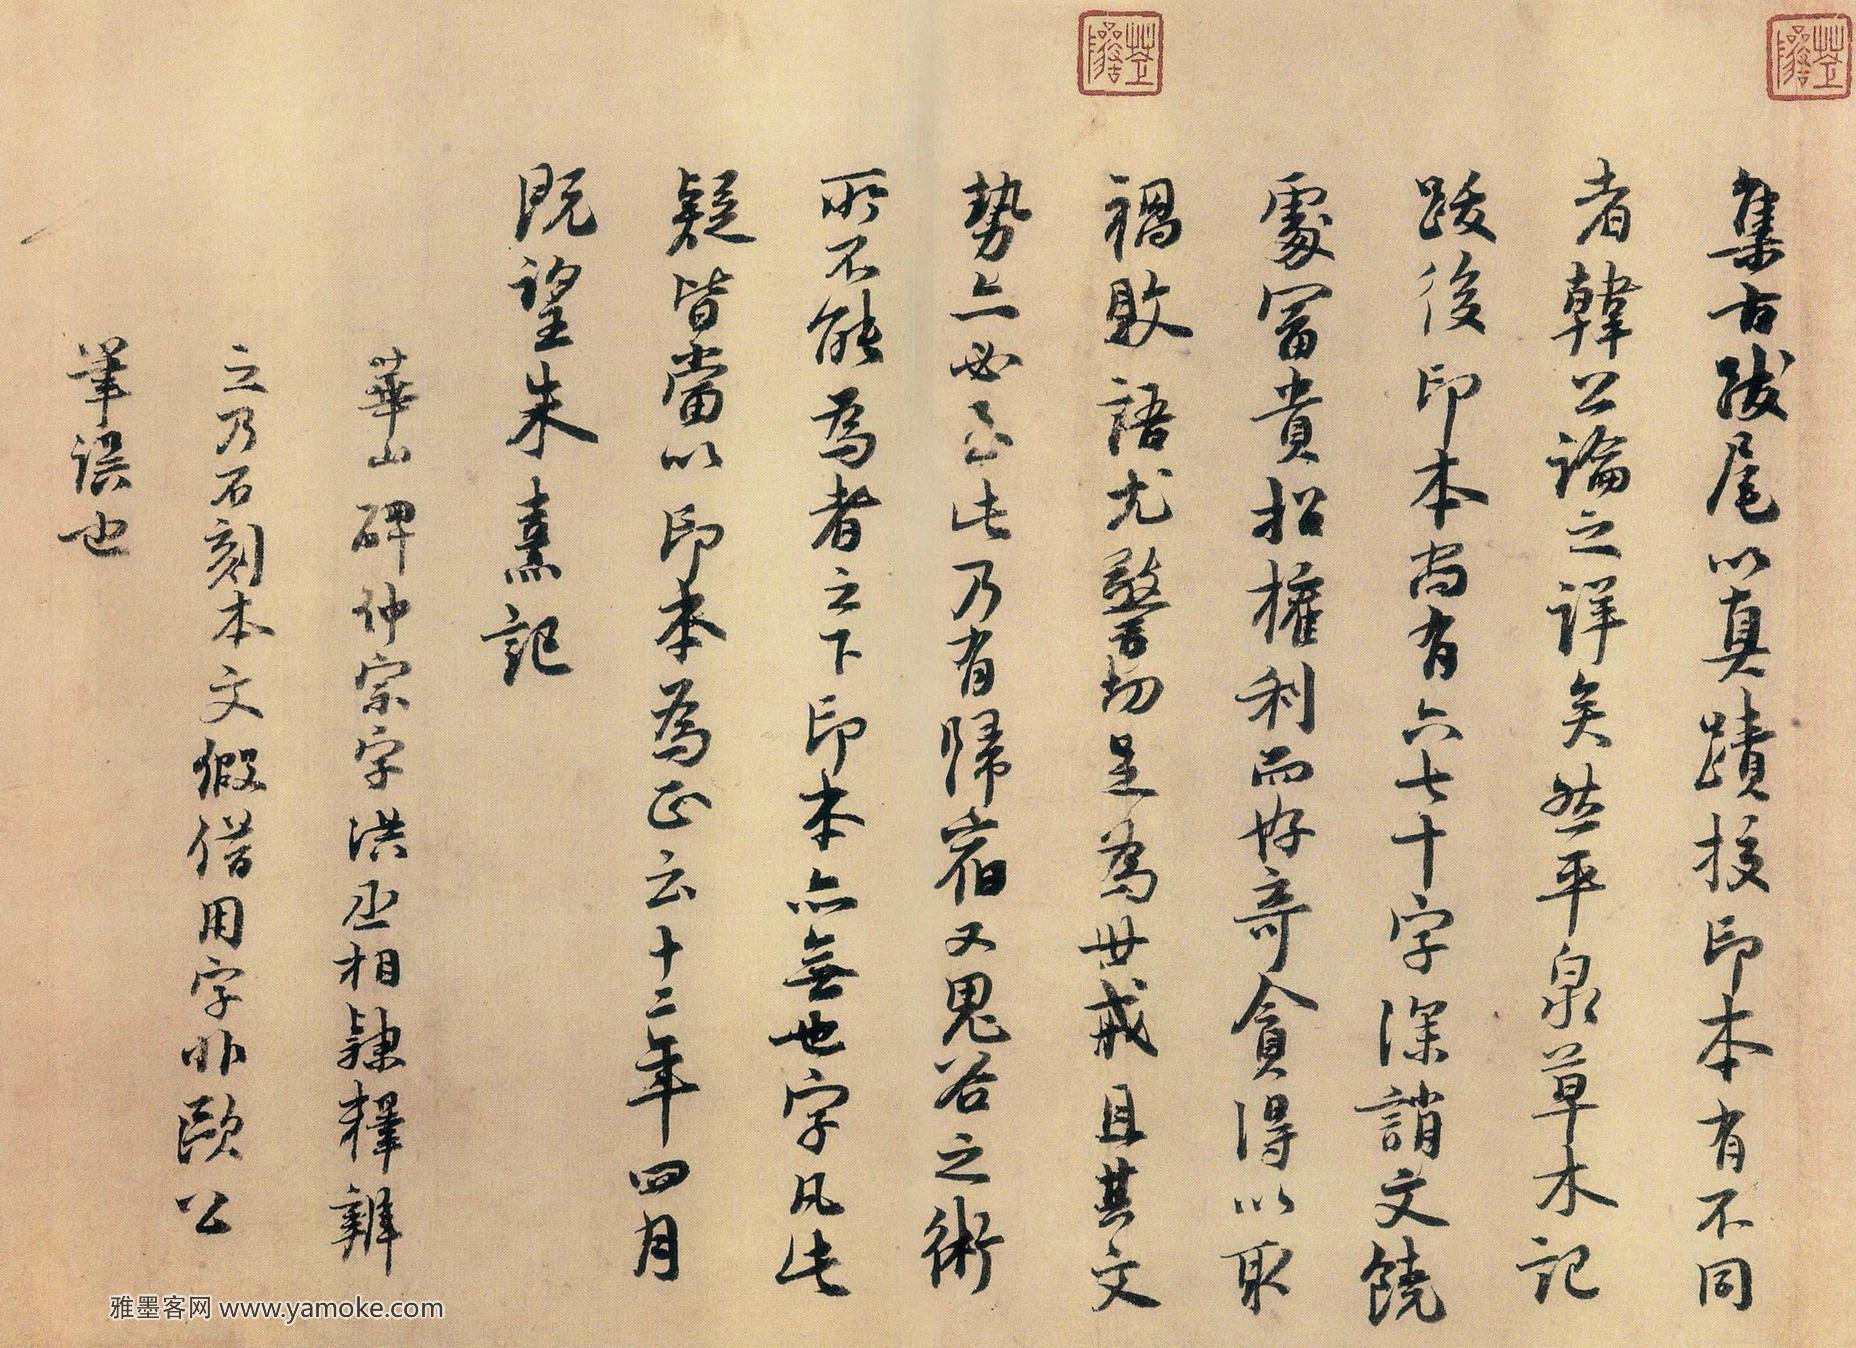 集古跋尾以真蹟校印本有不同
者韓公論之詳矣然平泉草木記
跋後印本尚有六七十字深誚文饒
處富貴招權利而好奇貪得以取
禍敗語尤警切足為世戒且其文
勢亦必至此乃有歸宿又鬼谷之術
所不能為者之下印本亦無也字凡此
疑皆當以印本為正云十二年四月
既望朱熹記
華山碑仲宗字洪丞相隸釋辨
之乃石刻本文假借用字非歐公
筆誤也
雅墨客网 www.yamoke.com